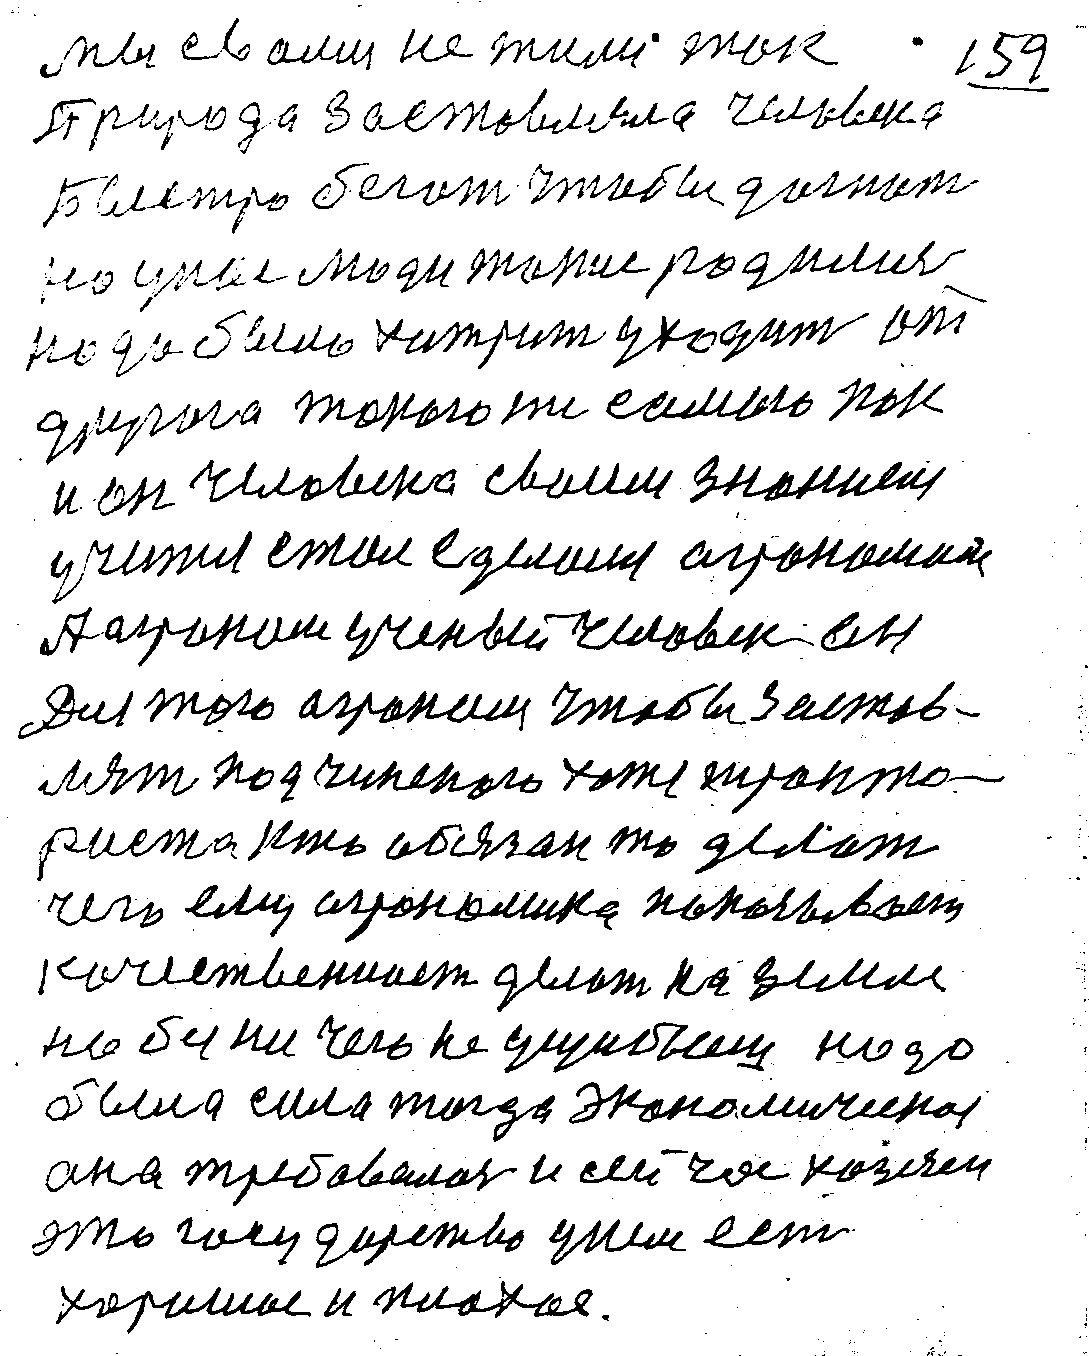 мы с вами не жили так 159
Природа заставляла человека
Быстро бегат чтобы догнат
но унас люди такие родилися
надо было хитрит уходит от
друрога такого же самого как
и он человека своим знанием
учился стал сделался агрономам
А агроном ученый человек он
Для того агроном чтобы застав-
лят подчиненого тоже тракто-
риста кто обязан то делат
чего ему агрономика показывает
качественност делат на земле
но бы ни чего не ушибыеш надо
была сила тогда экономическая
ана требовалася и сейчас хозяеи
это государство унас ест
хорошае и плохае.